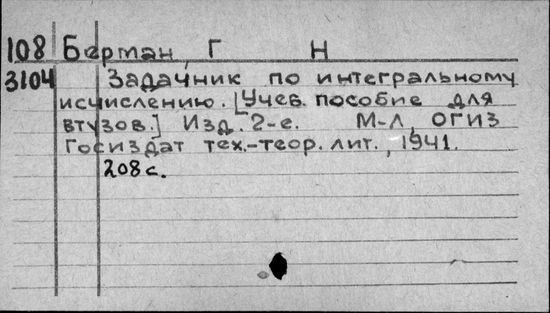 108 Берман, Г Н
3104 Задачник по интегральному
исчислению. [Учеб. пособие для
втузов.] Изд. 2-е. М-Л, ОГИЗ
Госиздат тех.-теор. лит., 1941.
208 с.